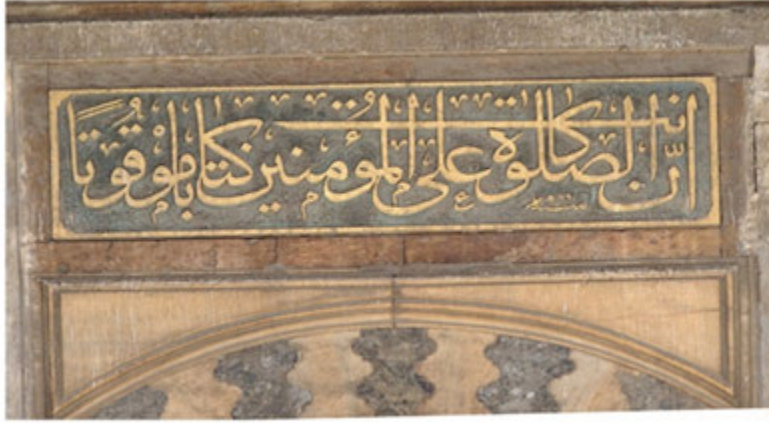 إنّ الصلوة كانت على المؤمنين كتابا موقوتا